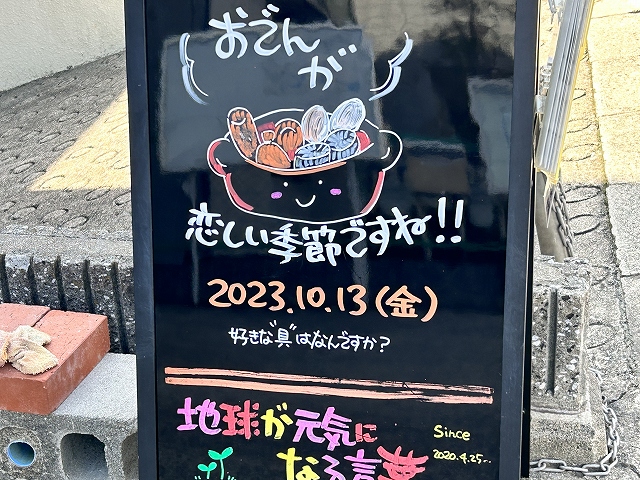 おでん
が
恋しい季節ですね!!
2023.10.13(金)
好きな"具"はなんですか?
地球が元気に
なる言葉
Since
2020.4.25〜